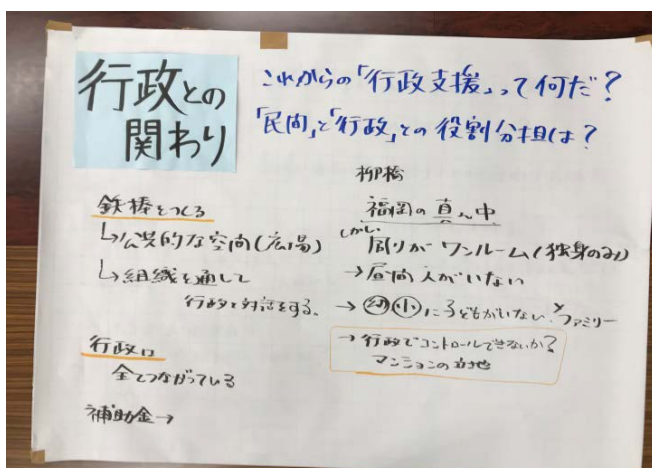 行政との
関わり
これからの「行政支援」って何だ？
「民間」と「行政」との役割分担は？
鉄棒をつくる
↳公共的な空間(広場)
↳組織を通して
行政と対話をする。
行政は
全てつながっている
補助金→
柳橋
福岡の真ん中
しかし
周りがワンルーム(独身のみ)
→昼間人がいない
→幼小に子どもがいない。
ファミリー
→行政でコントロールできないか？
マンションの立地